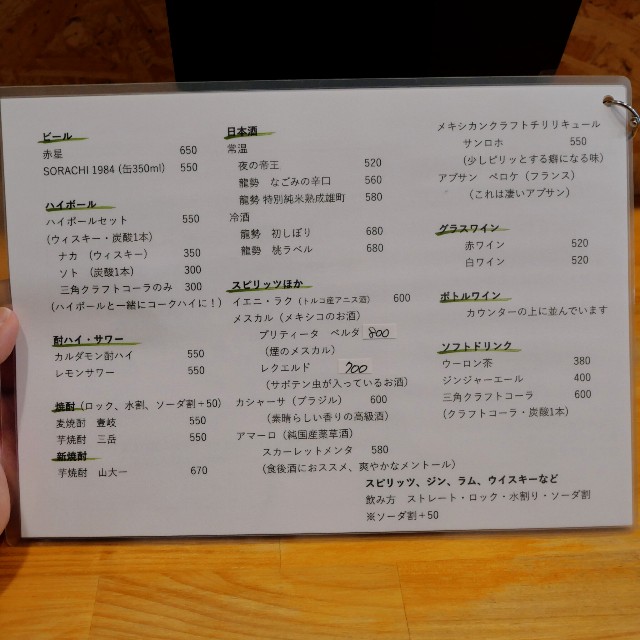 ビール
赤星 650
SORACHI 1984 (缶350ml) 550
ハイボール
ハイボールセット 550
(ウィスキー・炭酸1本)
ナカ (ウィスキー) 350
ソト (炭酸1本) 300
三角クラフトコーラのみ 300
(ハイボールと一緒にコークハイに!)
酎ハイ・サワー
カルダモン酎ハイ 550
レモンサワー 550
焼酎(ロック、水割、ソーダ割+50)
麦焼酎 壹岐 550
芋焼酎 三岳 550
新焼酎
芋焼酎 山大一 670
日本酒
常温
夜の帝王 520
龍勢 なごみの辛口 560
龍勢 特別純米熟成雄町 580
冷酒
龍勢 初しぼり 680
龍勢 桃ラベル 680
スピリッツほか
イエニ・ラク(トルコ産アニス酒) 600
メスカル(メキシコのお酒)
プリティータ ベルダ 800
(煙のメスカル)
レクエルド 700
(サボテン虫が入っているお酒)
カシャーサ(ブラジル) 600
(素晴らしい香りの高級酒)
アマーロ(純国産薬草酒)
スカーレットメンタ 580
(食後酒におススメ、爽やかなメントール)
メキシカンクラフトチリリキュール
サンロホ 550
(少しピリッとする癖になる味)
アブサン ペロケ(フランス)
(これは凄いアブサン)
グラスワイン
赤ワイン 520
白ワイン 520
ボトルワイン
カウンターの上に並んでいます
ソフトドリンク
ウーロン茶 380
ジンジャーエール 400
三角クラフトコーラ 600
(クラフトコーラ・炭酸1本)
スピリッツ、ジン、ラム、ウイスキーなど
飲み方 ストレート・ロック・水割り・ソーダ割
※ソーダ割+50